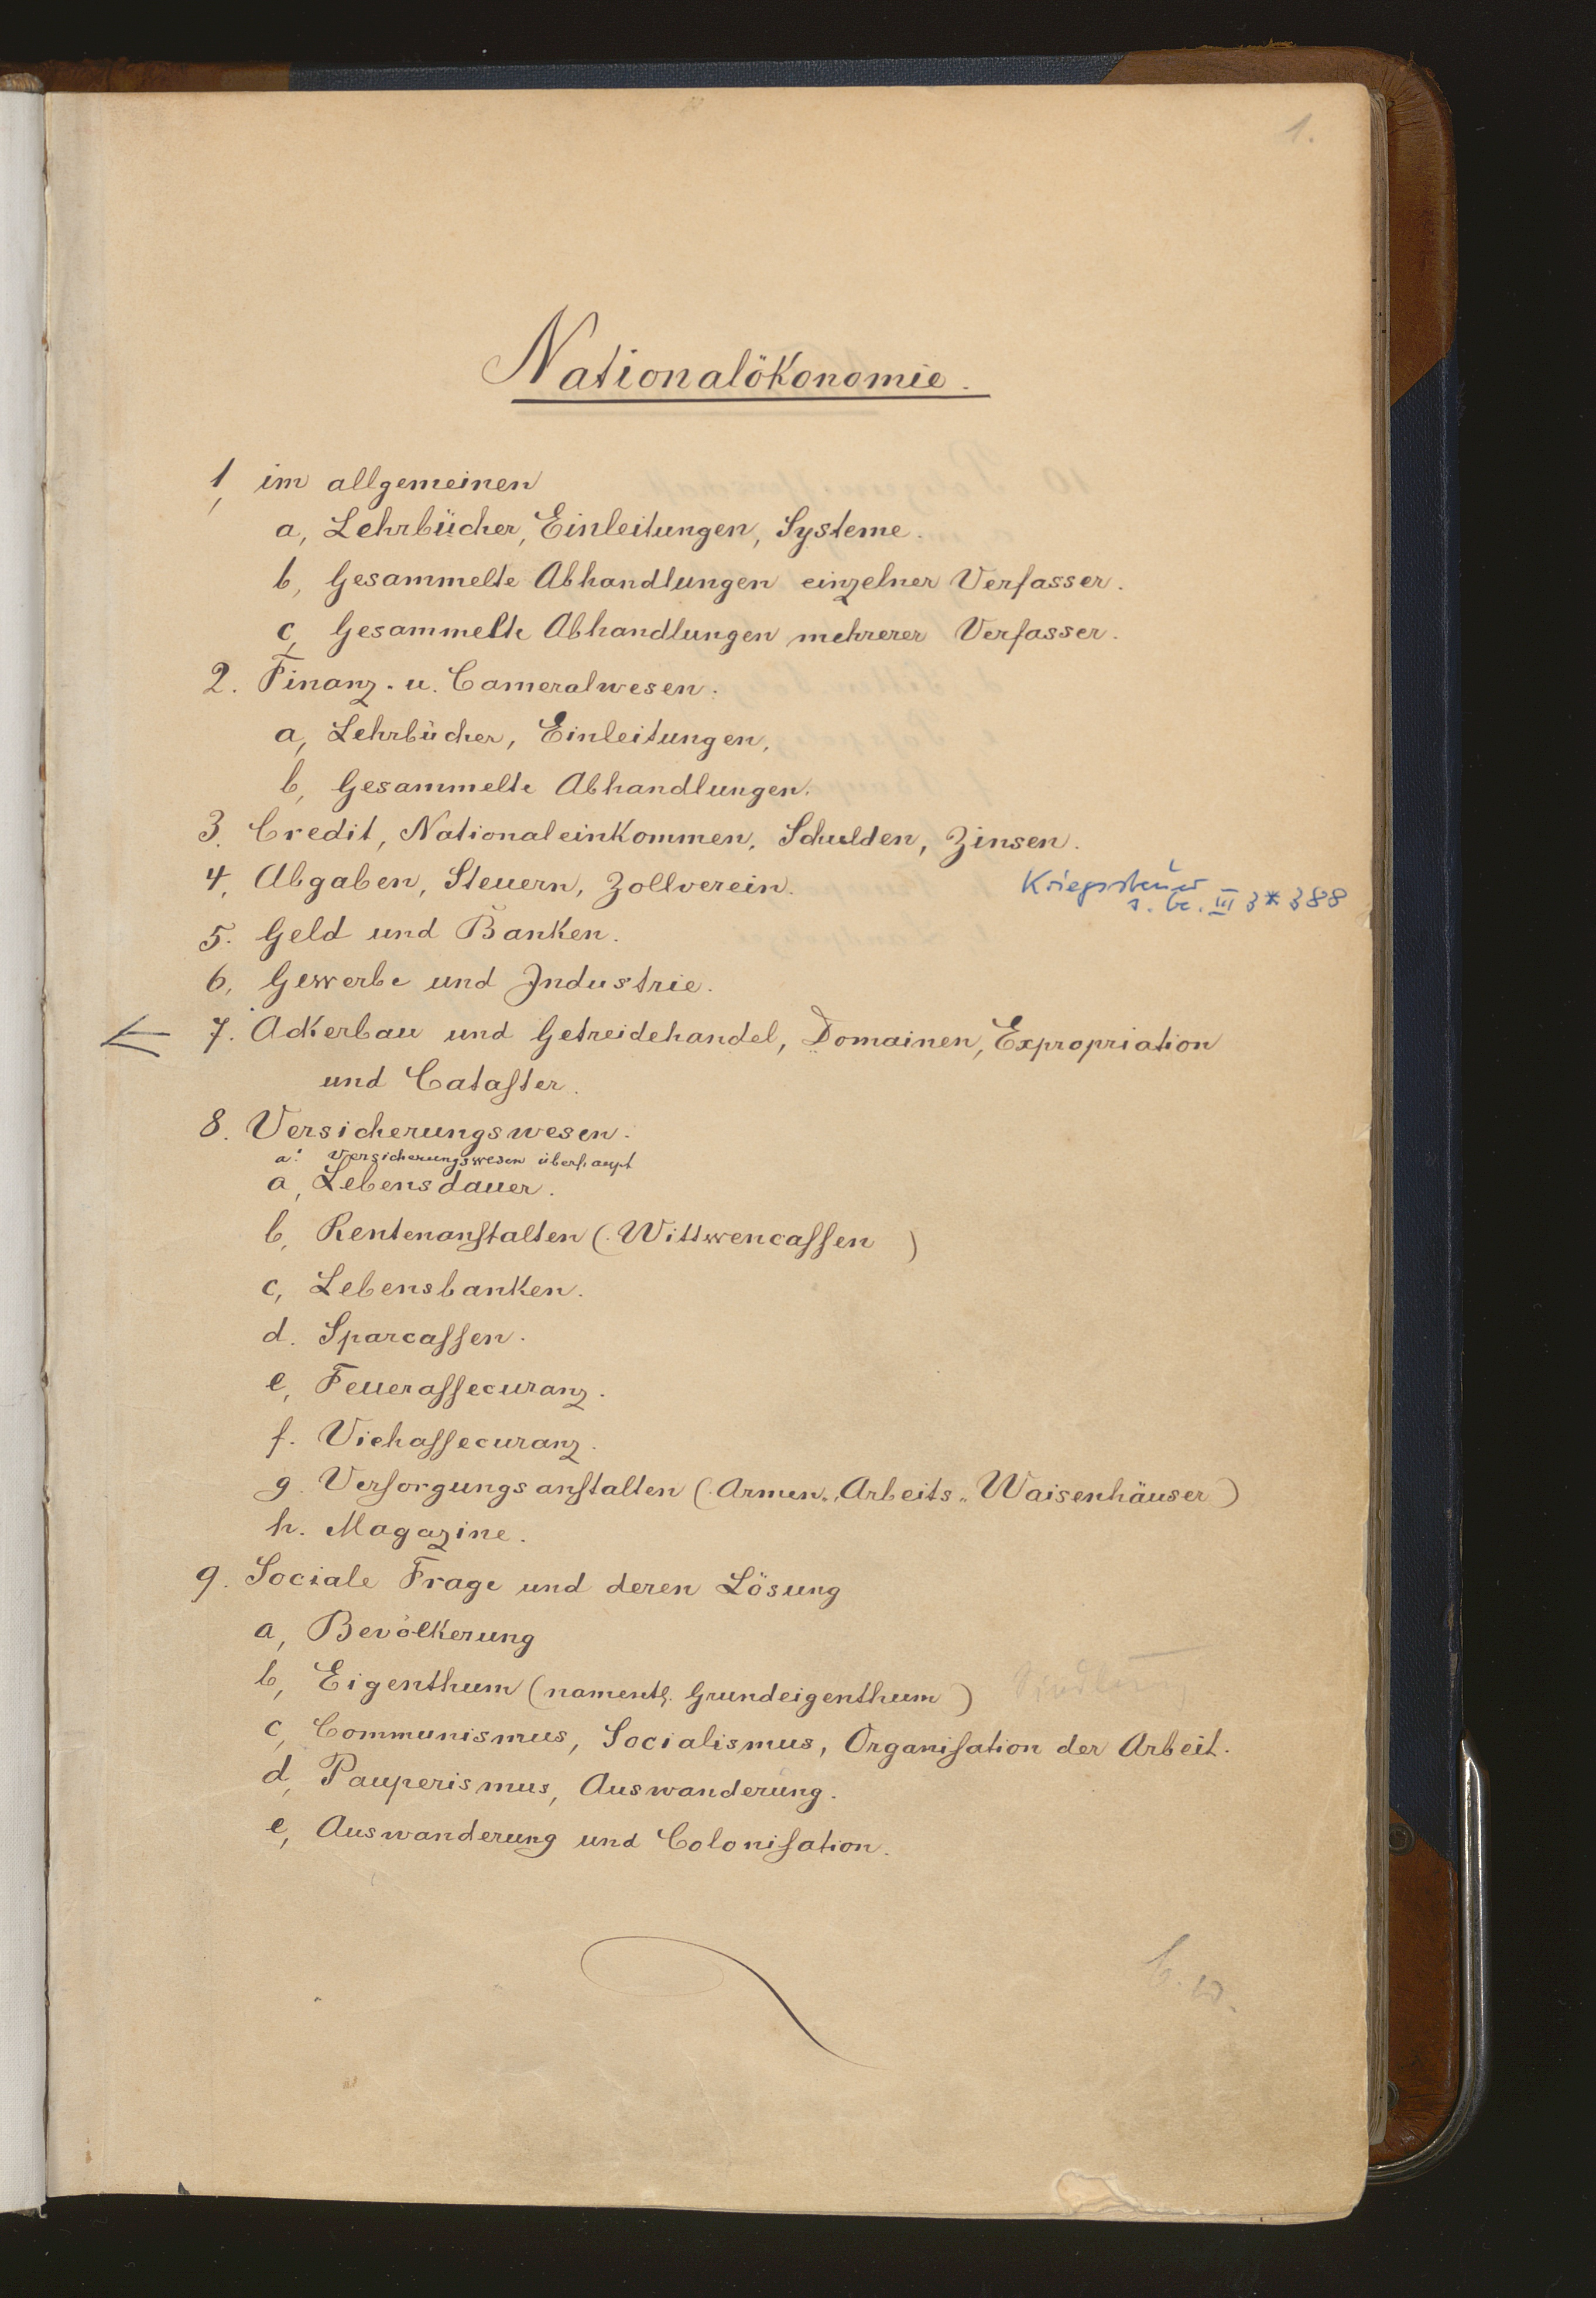 1.
Nationalökonomie.
1, im allgemeinen
a, Lehrbücher, Einleitungen, Systeme.
b, Gesammelte Abhandlungen einzelner Verfasser.
c, Gesammelte Abhandlungen mehrerer Verfasser.
2. Finanz- u. Cameralwesen.
a, Lehrbücher, Einleitungen,
b, Gesammelte Abhandlungen.
3. Credit, Nationaleinkommen, Schulden, Zinsen.
4, Abgaben, Steuern, Zollverein.
Kriegssteuer
s. be. III 3* 388
5. Geld und Banken.
6, Gewerbe und Industrie.
7. Ackerbau und Getreidehandel, Domainen, Expropriation
und Cataſter.
8. Versicherungswesen.
a'. Versicherungswesen überhaupt
a, Lebensdauer.
b, Rentenanſtalten (Wittwencaſſen)
c, Lebensbanken.
d. Sparcaſſen.
e, Feueraſſecuranz.
f. Viehaſſecuranz.
g. Verſorgungsanſtalten (Armen-, Arbeits-, Waisenhäuser)
h. Magazine.
9. Sociale Frage und deren Lösung
a, Bevölkerung
b, Eigenthum (namentl. Grundeigenthum)
c, Communismus, Socialismus, Organiſation der Arbeit.
d, Pauperismus, Auswanderung.
e, Auswanderung und Coloniſation.